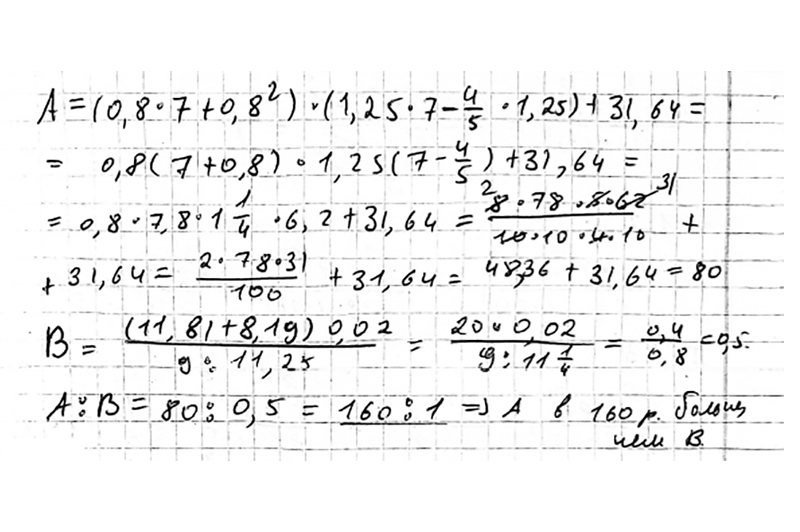 A = (0,8·7+0,8²)·(1,25·7−4/5·1,25)+31,64=
= 0,8(7+0,8)·1,25(7−4/5)+31,64=
= 0,8·7,8·1 1/4·6,2+31,64 = 2 8·78·5·62 31 / 10·10·4·10 +
+ 31,64 = 2·78·31/100 + 31,64 = 48,36 + 31,64 = 80
B = (11,81+8,19)0,02 / 9:11,25 = 20·0,02 / 9:11 1/4 = 0,4/0,8 = 0,5.
A:B = 80:0,5 = 160:1 => A в 160 р. больш
чем B.